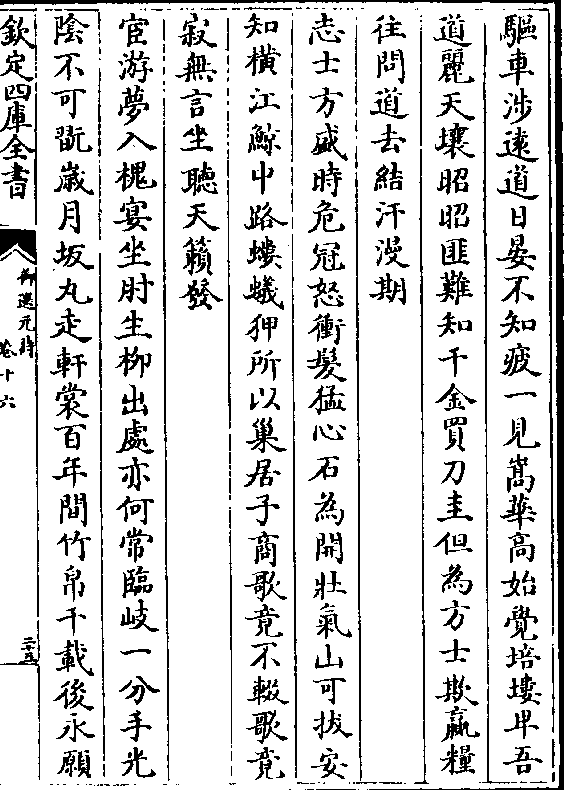 驅車涉逺道日晏不知疲一見嵩華髙始覺培塿卑吾
道麗天壤昭昭匪難知千金買刀圭但為方士欺贏糧
往問道去結汗漫期
志士方盛時危冠怒衝髮猛心石為開壯氣山可拔安
知橫江鯨中路螻蟻狎所以巢居子商歌竟不輟歌竟
寂無言坐聽天籟發
宦游夢入槐宴坐肘生柳出處亦何常臨岐一分手光
隂不可翫歲月坂丸走軒裳百年間竹帛千載後永願
欽定四庫全書
御選元詩
卷十六
二十五